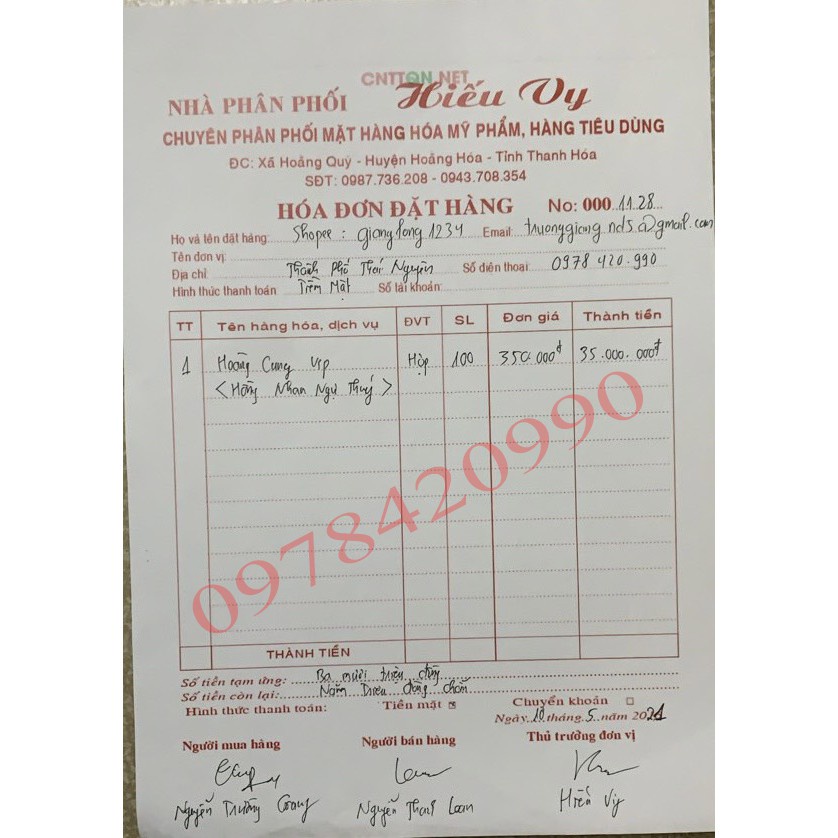 CNTTQN.NET
NHÀ PHÂN PHỐI Hiếu Vy
CHUYÊN PHÂN PHỐI MẶT HÀNG HÓA MỸ PHẨM, HÀNG TIÊU DÙNG
ĐC: Xã Hoằng Quý - Huyện Hoằng Hóa - Tỉnh Thanh Hóa
SĐT: 0987.736.208 - 0943.708.354
HÓA ĐƠN ĐẶT HÀNG No: 000 1128
Họ và tên đặt hàng: Shopee: gianglong1234 Email: truonggiang.nd5@gmail.com
Tên đơn vị:
Địa chỉ Thành Phố Thái Nguyên Số điện thoại: 0978 420.990
Hình thức thanh toán Tiền Mặt Số tài khoản:
TT Tên hàng hóa, dịch vụ ĐVT SL Đơn giá Thành tiền
1 Hoàng Cung Vip Hộp 100 350.000đ 35.000.000đ
<Hồng Nhan Ngự Thuỷ>
0978420990
THÀNH TIỀN
Số tiền tạm ứng: Ba mươi triệu đồng
Số tiền còn lại: Năm Triệu đồng chẵn
Hình thức thanh toán: Tiền mặt Chuyển khoản
Ngày 10 tháng 5 năm 2021
Người mua hàng Người bán hàng Thủ trưởng đơn vị
Nguyễn Trường Giang Nguyễn Thanh Loan Hiếu Vy